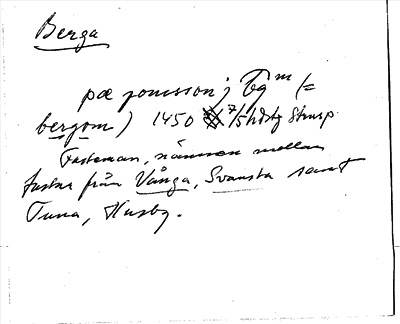 Berga
pæ jonsson j Bgᵐ (=
bergom) 1450 7/5 hdstg Strwsp.
Fasteman, nämnes mellan
fastar från Vånga, Svansta samt
Tuna, Husby.